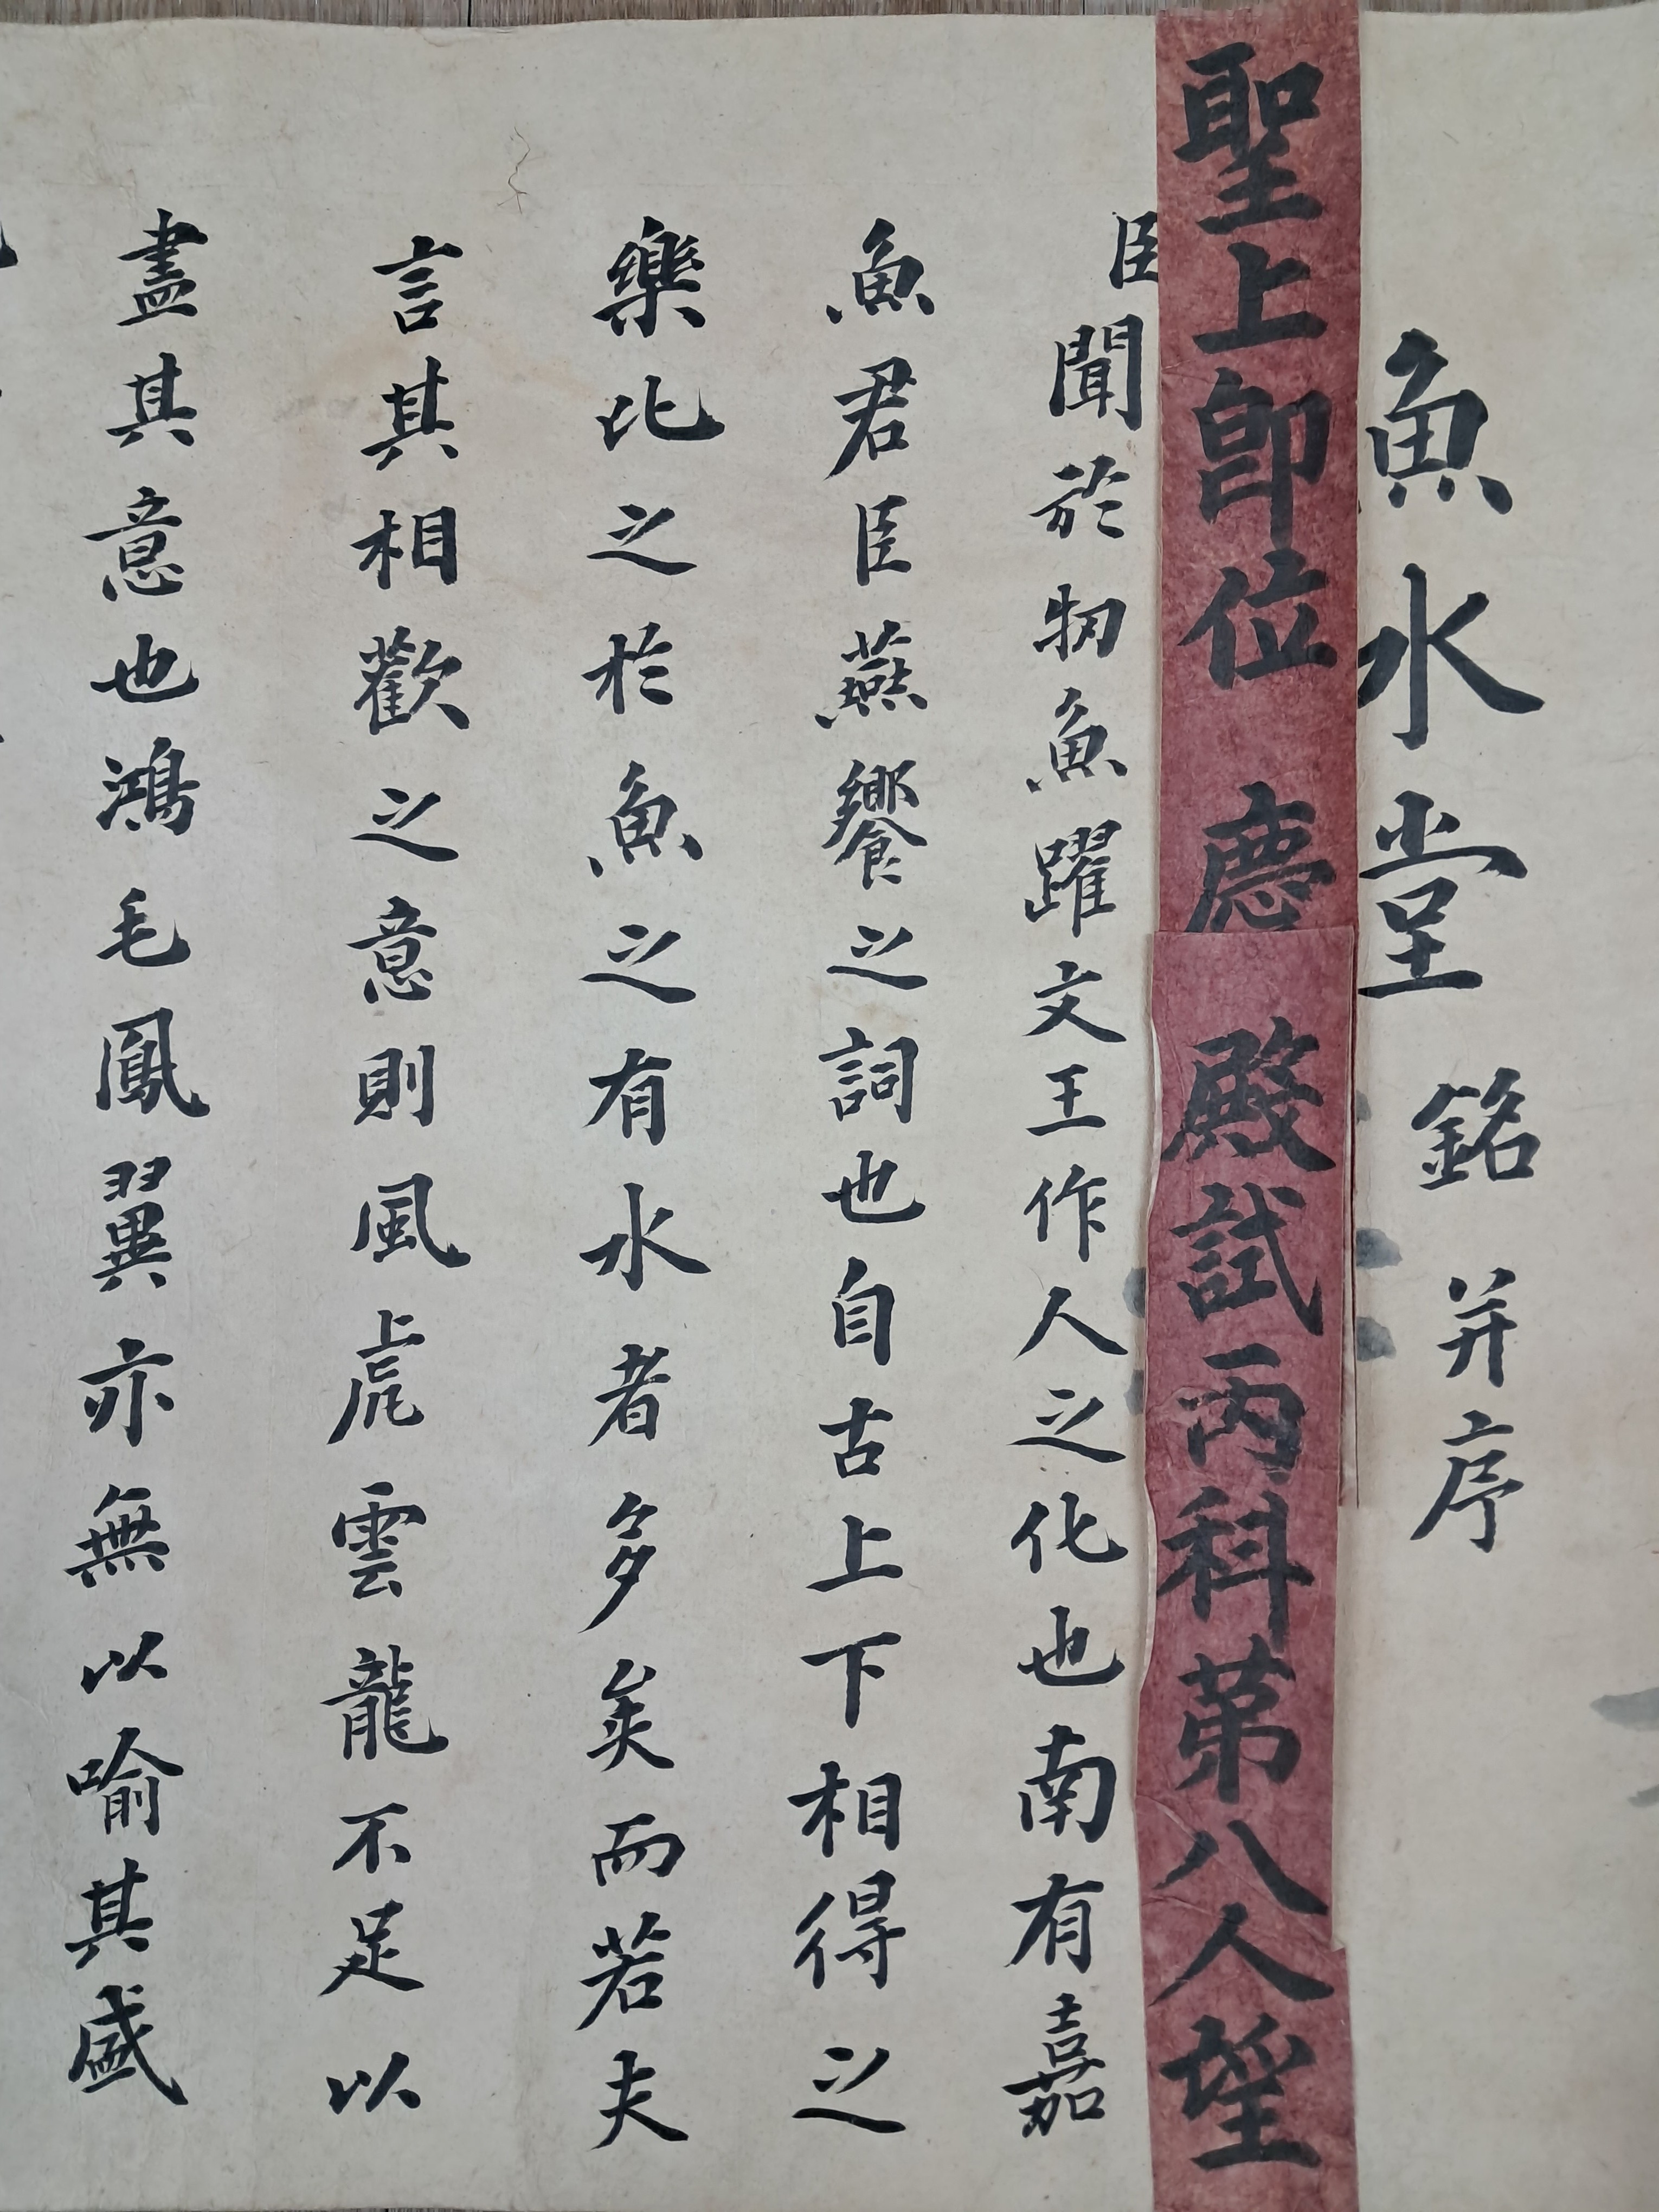 魚水堂銘并序
聖上卽位慶殿試丙科第八人望
臣聞於牣魚躍文王作人之化也南有嘉
魚君臣燕饗之詞也自古上下相得之
樂比之於魚之有水者多矣而若夫
言其相歡之意則風虎雲龍不足以
盡其意也鴻毛鳳翼亦無以喻其盛